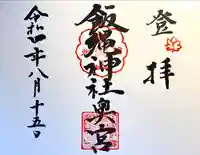 登拝
飯縄神社奥宮
令和年八月十五日